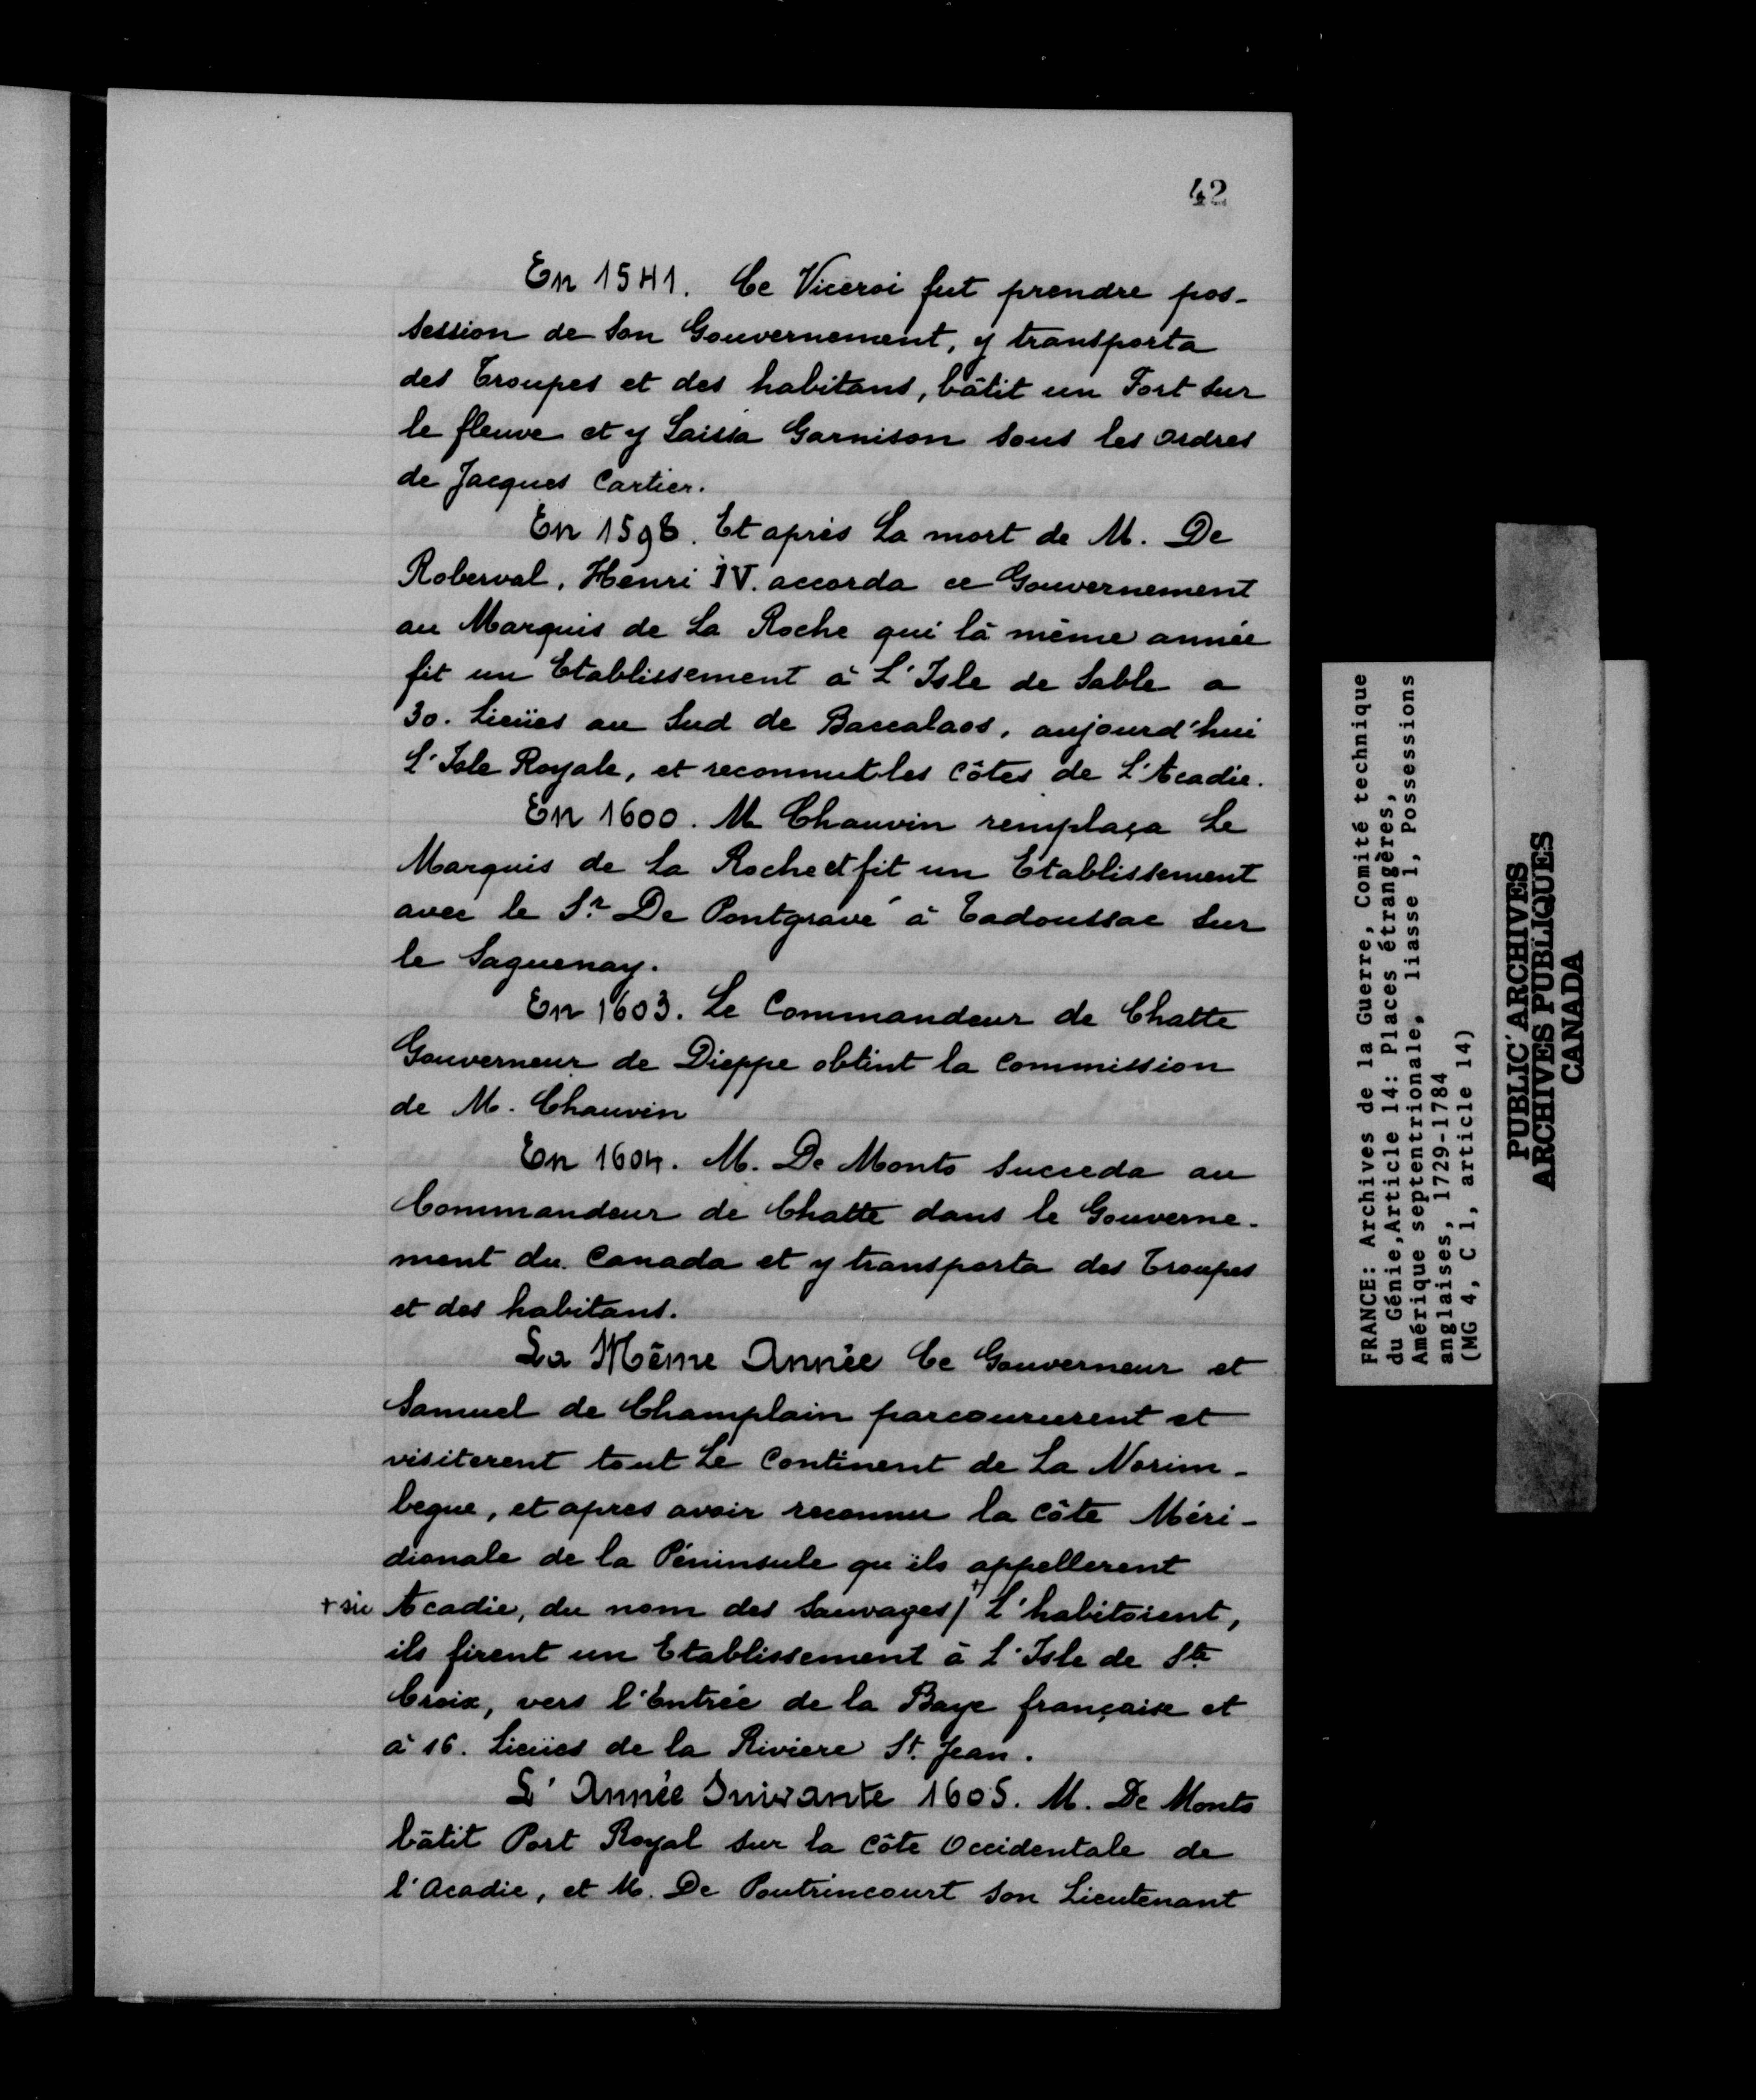 42
En 1541. Ce Viceroi fut prendre pos-
session de son Gouvernement, y transporta
des Troupes et des habitans, bâtit un Fort sur
le fleuve et y Laissa Garnison sous les ordres
de Jacques Cartier.
En 1598. Et après La mort de M. De
Roberval, Henri IV. accorda ce Gouvernement
au Marquis de La Roche qui là même année
fit un Etablissement à L'Isle de Sable a
30. Lieües au Sud de Baccalaos, aujourd'hui
L'Isle Royale, et reconnut les côtes de L'Acadie.
En 1600. M Chauvin remplaça Le
Marquis de La Roche et fit un Etablissement
avec le Sr. De Pontgravé à Tadoussac sur
le Saguenay.
En 1603. Le Commandeur de Chatte
Gouverneur de Dieppe obtint la Commission
de M. Chauvin
En 1604. M. De Monts succeda au
Commandeur de Chatte dans le Gouverne-
ment du Canada et y transporta des Troupes
et des habitans.
La Même Année Ce Gouverneur et
Samuel de Champlain parcoururent et
visiterent tout Le Continent de La Norim-
begue, et apres avoir reconnu la côte Méri-
dionale de la Péninsule qu'ils appellerent
+ sic Acadie, du nom des Sauvages /+ L'habitoient,
ils firent un Etablissement à L'Isle de Ste
Croix, vers l'Entrée de la Baye française et
à 16. Lieües de la Riviere St. Jean.
L'Année Suivante 1605. M. De Monts
bâtit Port Royal sur la côte Occidentale de
l'Acadie, et M. De Poutrincourt son Lieutenant
FRANCE: Archives de la Guerre, Comité technique
du Génie,Article 14: Places étrangères,
Amérique septentrionale, liasse 1, Possessions
anglaises, 1729-1784
(MG 4, C 1, article 14)
PUBLIC ARCHIVES
ARCHIVES PUBLIQUES
CANADA